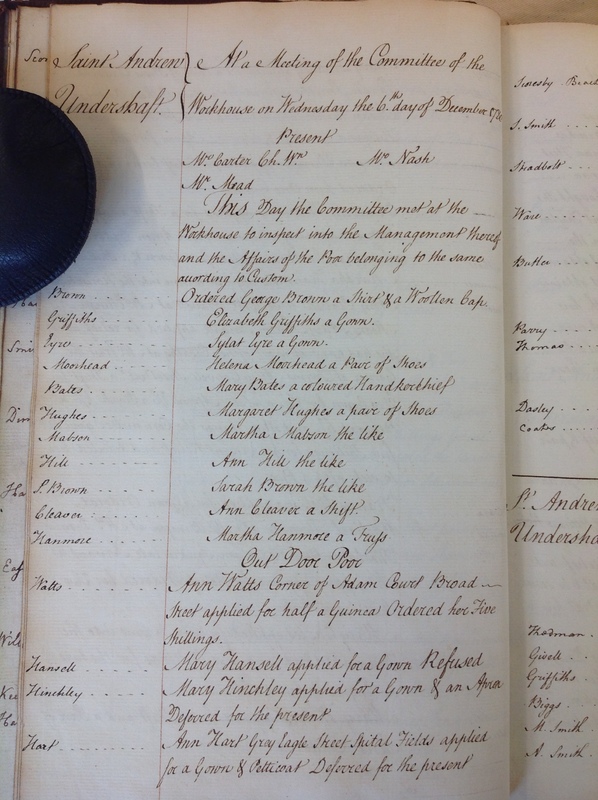 Saint Andrew } At a Meeting of the Committee of the
Undershaft. Workhouse on Wednesday the 6th day of December
Present
Mr. Carter Ch. Wn. Mr. Nash
Mr. Mead
This Day the Committee met at the
Workhouse to inspect into the Management thereof
and the Affairs of the Poor belonging to the same
according to Custom.
Brown Ordered George Brown a Shirt & a Woollen Cap.
Griffiths Elizabeth Griffiths a Gown.
Eyre Sylat Eyre a Gown.
Moorhead Helena Moorhead a Pare of Shoes
Bates Mary Bates a coloured Handkerbhief
Hughes Margaret Hughes a pare of Shoes
Mabson Martha Mabson the like
Hill Ann Hill the like
S. Brown Sarah Brown the like
Cleaver Ann Cleaver a Shift.
Hanmore Martha Hanmore a Truss
Out Door Poor
Watts Ann Watts Corner of Adam Court Broad
Street applied for half a Guinea Ordered her Five
Shillings.
Hansell Mary Hansell applied for a Gown Refused
Hinchley Mary Hinchley applied for a Gown & an Apron
Deferred for the present
Hart Ann Hart Gray Eagle Street Spital Fields applied
for a Gown & Petticoat Deferred for the present
S. Smith
Stradbolt
Ware
Butler
Parry
Thomas
Dasley
Coates
St. Andrew
Undersha
Thodman
Gisell
Griffiths
Biggs
M. Smith
A. Smith